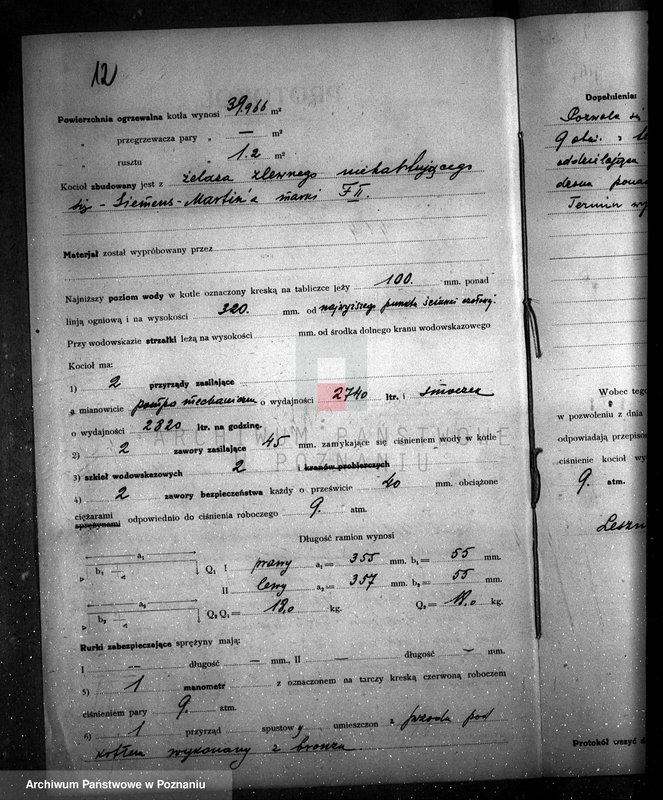 12
Powierzchnia ogrzewalna kotła wynosi 39,966 m²
„ przegrzewacza pary „ — m²
„ rusztu „ 1.2 m²
Kocioł zbudowany jest z żelaza zlewnego niehartującego
się - Siemens-Martin'a marki F II.
Materjał został wypróbowany przez
Najniższy poziom wody w kotle oznaczony kreską na tabliczce leży 100. mm. ponad
linją ogniową i na wysokości 320. mm. od najwyższego punktu ścianki
Przy wodowskazie strzałki leżą na wysokości mm. od środka dolnego kranu wodowskazowego
Kocioł ma:
1) 2 przyrządy zasilające
a mianowicie pompę mechaniczną o wydajności 2740 ltr. i smoczek
o wydajności 2820 ltr. na godzinę.
2) 2 zawory zasilające 45 mm. zamykające się ciśnieniem wody w kotle
3) szkieł wodowskazowych 2 kranów probierczych
4) 2 zawory bezpieczeństwa każdy o prześwicie 40 mm. obciążone
ciężarami
sprężynami odpowiednio do ciśnienia roboczego 9. atm.
Długość ramion wynosi
a₁ b₁ Q₁ I prawy a₁ = 355 mm. b₁ = 55 mm.
II lewy a₂ = 357 mm. b₂ = 55 mm.
a₂ b₂ Q₂ Q₁ = 18,0 kg. Q₂ = 18,0 kg.
Rurki zabezpieczające sprężyny mają:
I — długość — mm., II — długość — mm.
5) 1 manometr z oznaczonem na tarczy kreską czerwoną roboczem
ciśnieniem pary 9. atm.
6) 1 przyrząd spustowy umieszczon z przodu pod
kotłem wykonany z bronzu
Dopełnienia:
Pozwala się
9 atm. z
oddzielająca
drona ponad
Termin
Wobec tego
w pozwoleniu z dnia
odpowiadają przepiso
ciśnienie kocioł wy
9. atm.
Leszn
Protokół uszyć d
ARCHIWUM PAŃSTWOWE
W POZNANIU
Archiwum Państwowe w Poznaniu